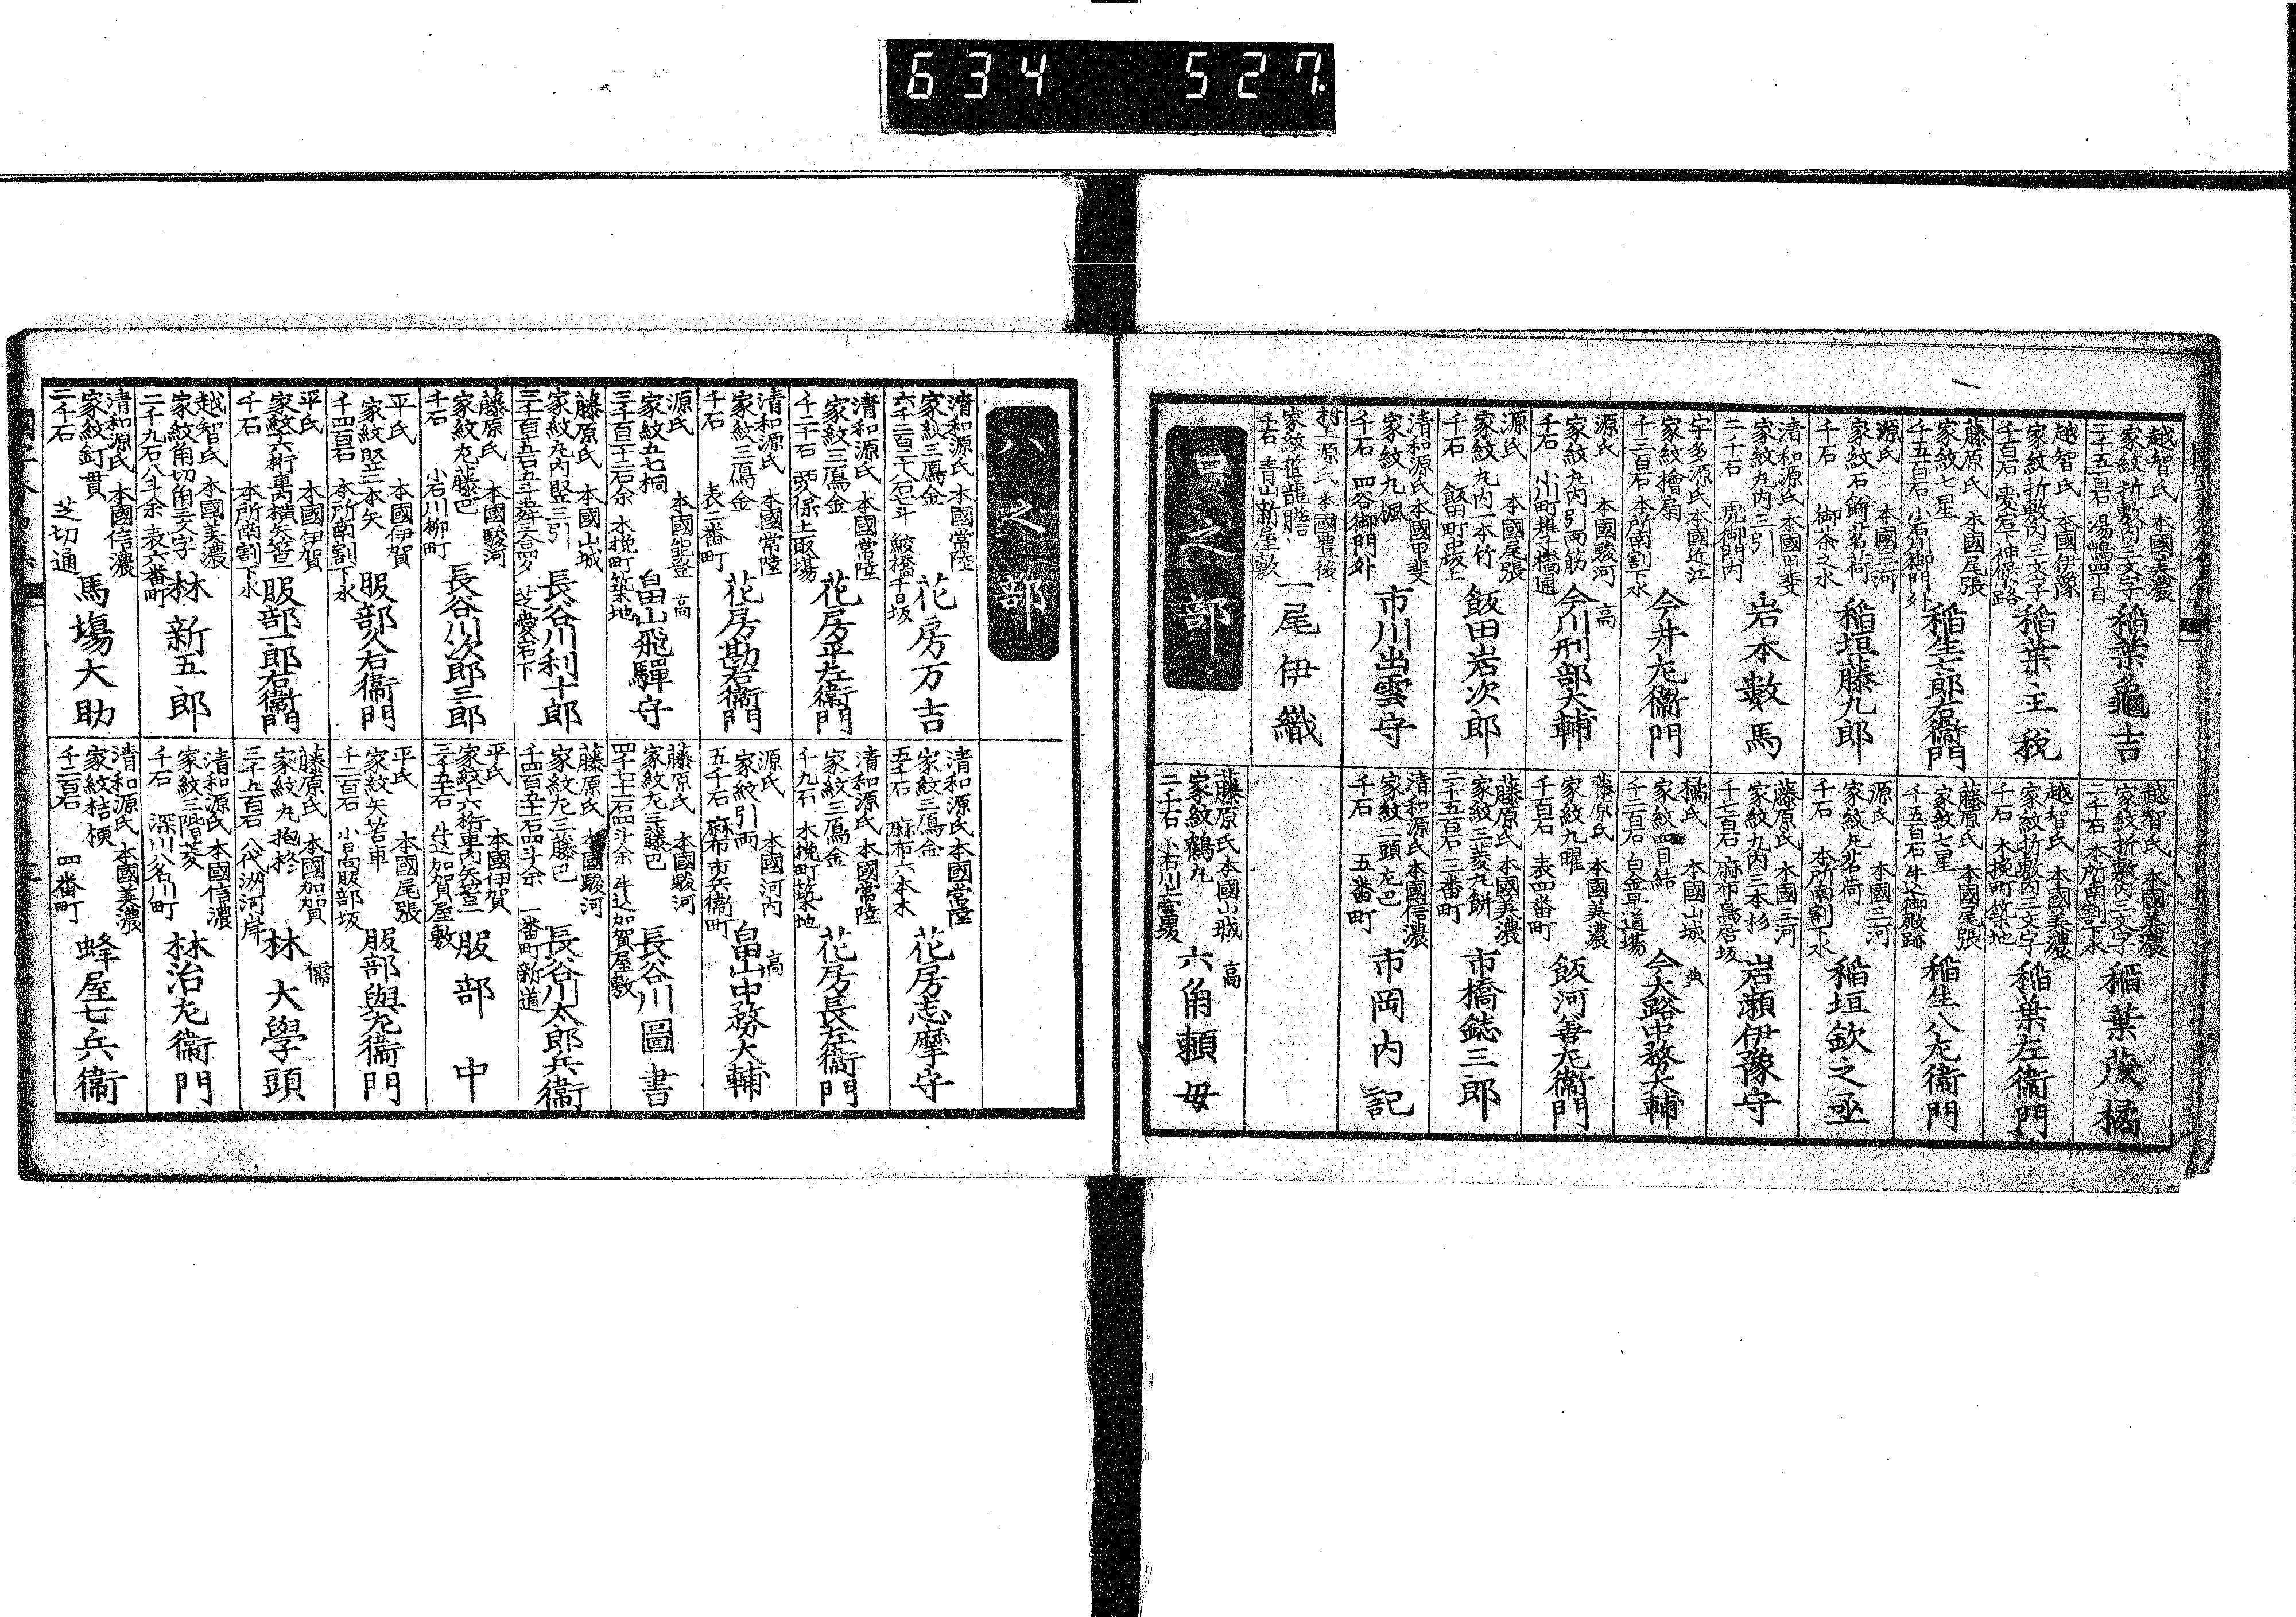 634 527.
越智氏 本國美濃
家紋折敷内三文字
二千五百石 湯嶋四丁目
稲葉龜吉
越智氏 本國伊豫
家紋折敷内三文字
稲葉主税
藤原氏 本國尾張
家紋七星
千五百石 小石川御門外
稲生七郎右衞門
源氏 本國三河
家紋石餅茗荷
千石 御茶之水
稲垣藤九郎
清和源氏 本國甲斐
家紋丸内三引
二千石 虎御門内
岩本數馬
宇多源氏 本國近江
家紋檜扇
千三百石 本所南割下水
今井左衞門
源氏 本國駿河
家紋丸内引両筋
千石 小川町
高
今川刑部大輔
源氏 本國尾張
家紋丸内一本竹
千石 飯田町中坂上
飯田岩次郎
清和源氏 本國甲斐
家紋丸楓
千石 四谷御門外
市川出雲守
村上源氏 本國豊後
家紋笹龍膽
千石 青山新屋敷
一尾伊織
口之部
越智氏 本國美濃
家紋折敷内三文字
二千石 本所南割下水
稲葉茂橘
越智氏 本國美濃
家紋折敷内三文字
千石 木挽町築地
稲葉左衞門
藤原氏 本國尾張
家紋七星
千五百石 牛込御殿跡
稲生八左衞門
源氏 本國三河
家紋丸茗荷
千石 本所南割下水
稲垣欽之丞
藤原氏 本國三河
家紋丸内三本杉
千七百石 麻布鳥居坂
岩瀬伊豫守
橘氏 本國山城
家紋四目結
千二百石 白金早道場
典
今大路中務大輔
藤原氏 本國美濃
家紋九曜
千百石 表四番町
飯河善左衞門
藤原氏 本國美濃
家紋三菱丸餅
二千五百石 三番町
市橋鋕三郎
清和源氏 本國信濃
家紋二頭左巴
千石 五番町
市岡内記
藤原氏 本國山城
家紋鶴丸
二千石 小石川
高
六角頼母
ハ之部
清和源氏 本國常陸
家紋三鳫金
花房万吉
清和源氏 本國常陸
家紋三鳫金
花房平左衞門
清和源氏 本國常陸
家紋三鳫金
千石 表二番町
花房勘右衞門
源氏 本國能登
家紋五七桐
三千百十二石余 木挽町築地
高
畠山飛騨守
藤原氏 本國山城
家紋丸内竪三引
芝愛宕下
長谷川利十郎
藤原氏 本國駿河
家紋左藤巴
千石 小石川柳町
長谷川次郎三郎
平氏 本國伊賀
家紋竪二本矢
千四百石 本所南割下水
服部久右衞門
平氏 本國伊賀
千石 本所南割下水
服部一郎右衞門
越智氏 本國美濃
家紋角切角三文字
二千九石八斗余 表六番町
林新五郎
清和源氏 本國信濃
家紋釘貫
二千石 芝切通
馬塲大助
清和源氏 本國常陸
家紋三鳫金
五千石 麻布六本木
花房志摩守
清和源氏 本國常陸
家紋三鳫金
千九石 木挽町築地
花房長左衞門
源氏 本國河内
家紋引両
五千石 麻布市兵衞町
高
畠山中務大輔
藤原氏 本國駿河
家紋左三藤巴
牛込加賀屋敷
長谷川圖書
藤原氏 本國駿河
家紋左三藤巴
一番町新道
長谷川太郎兵衞
平氏 本國伊賀
牛込加賀屋敷
服部中
平氏 本國尾張
家紋矢筈車
千二百石 小日向服部坂
服部與左衞門
藤原氏 本國加賀
家紋丸抱柊
三千五百石 八代洲河岸
儒
林大學頭
清和源氏 本國信濃
家紋三階菱
千石 深川八名川町
林治左衞門
清和源氏 本國美濃
家紋桔梗
千二百石 四番町
蜂屋七兵衞